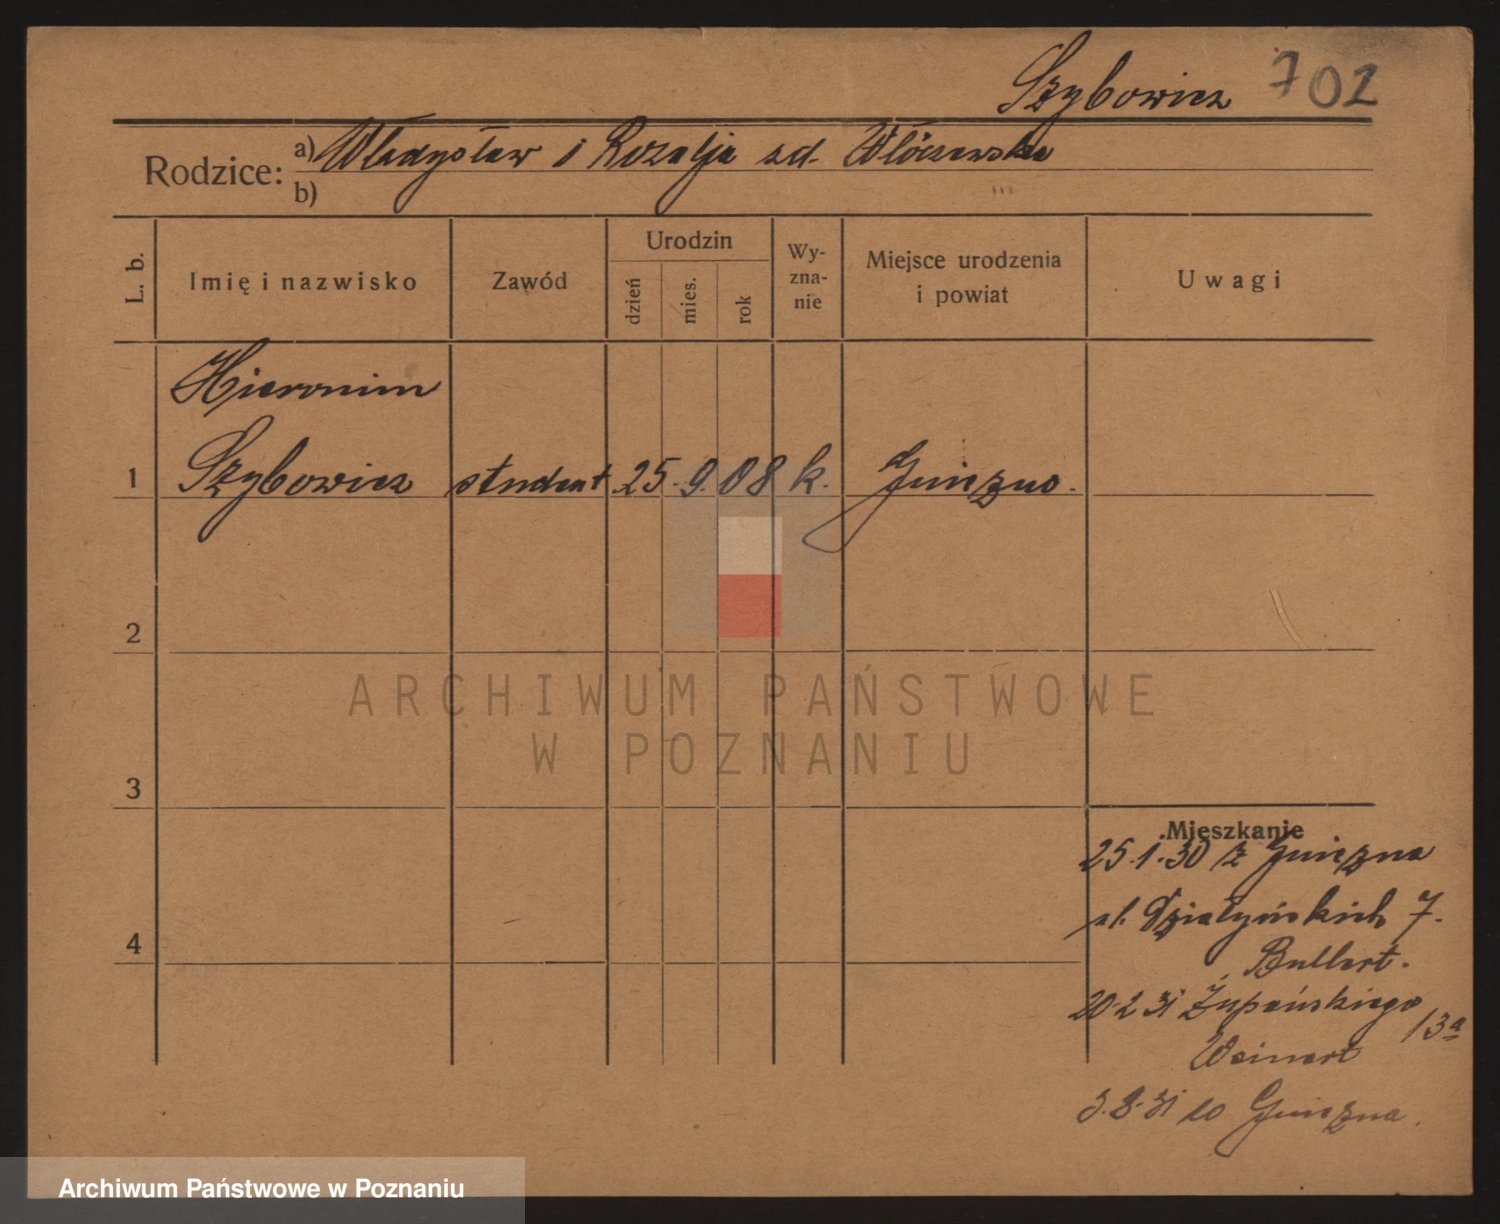 Szybowicz 702
Rodzice: a) Władysław i Rozalja zd. Włóczewska
b)
L. b.
Imię i nazwisko
Zawód
Urodzin
dzień
mies.
rok
Wy-
zna-
nie
Miejsce urodzenia
i powiat
Uwagi
Hieronim
1 Szybowicz student 25. 9. 08 k. Gniezno.
2
ARCHIWUM PAŃSTWOWE
W POZNANIU
3
Mieszkanie
25.1.30 z Gniezna
ul. Działyńskich 7.
4
Bullert.
20.2 31 Żupańskiego 13a
Weinert
3.8.31 do Gniezna.
Archiwum Państwowe w Poznaniu